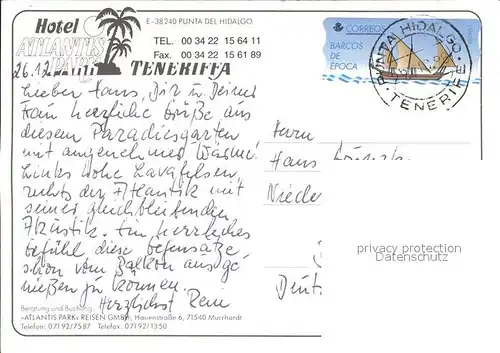 Hotel
ATLANTIS
PARK
TENERIFFA
E-38240 PUNTA DEL HIDALGO
TEL. 00 34 22 15 64 11
Fax. 00 34 22 15 61 89
CORREOS
BARCOS
DE
EPOCA
PUNTA HIDALGO
TENERIFE
26.12
Lieber Hans, Dir u. Deiner
Frau herzliche Grüße aus
diesem Paradiesgarten
mit angenehmer Wärme!
Links hohe Lavafelsen,
rechts der Atlantik mit
seiner gleichbleibenden
Akustik. Ein herrliches
Gefühl diese Gegensätze
schon vom Balkon aus ge
nießen zu können.
Herzlichst
Herrn
Hans
Nieder
Deut
privacy protection
Datenschutz
Beratung und Buchung:
»ATLANTIS PARK« REISEN GMBH, Hauenstraße 6, 71540 Murrhardt
Telefon: 07192/7587 Telefax: 07192/1350